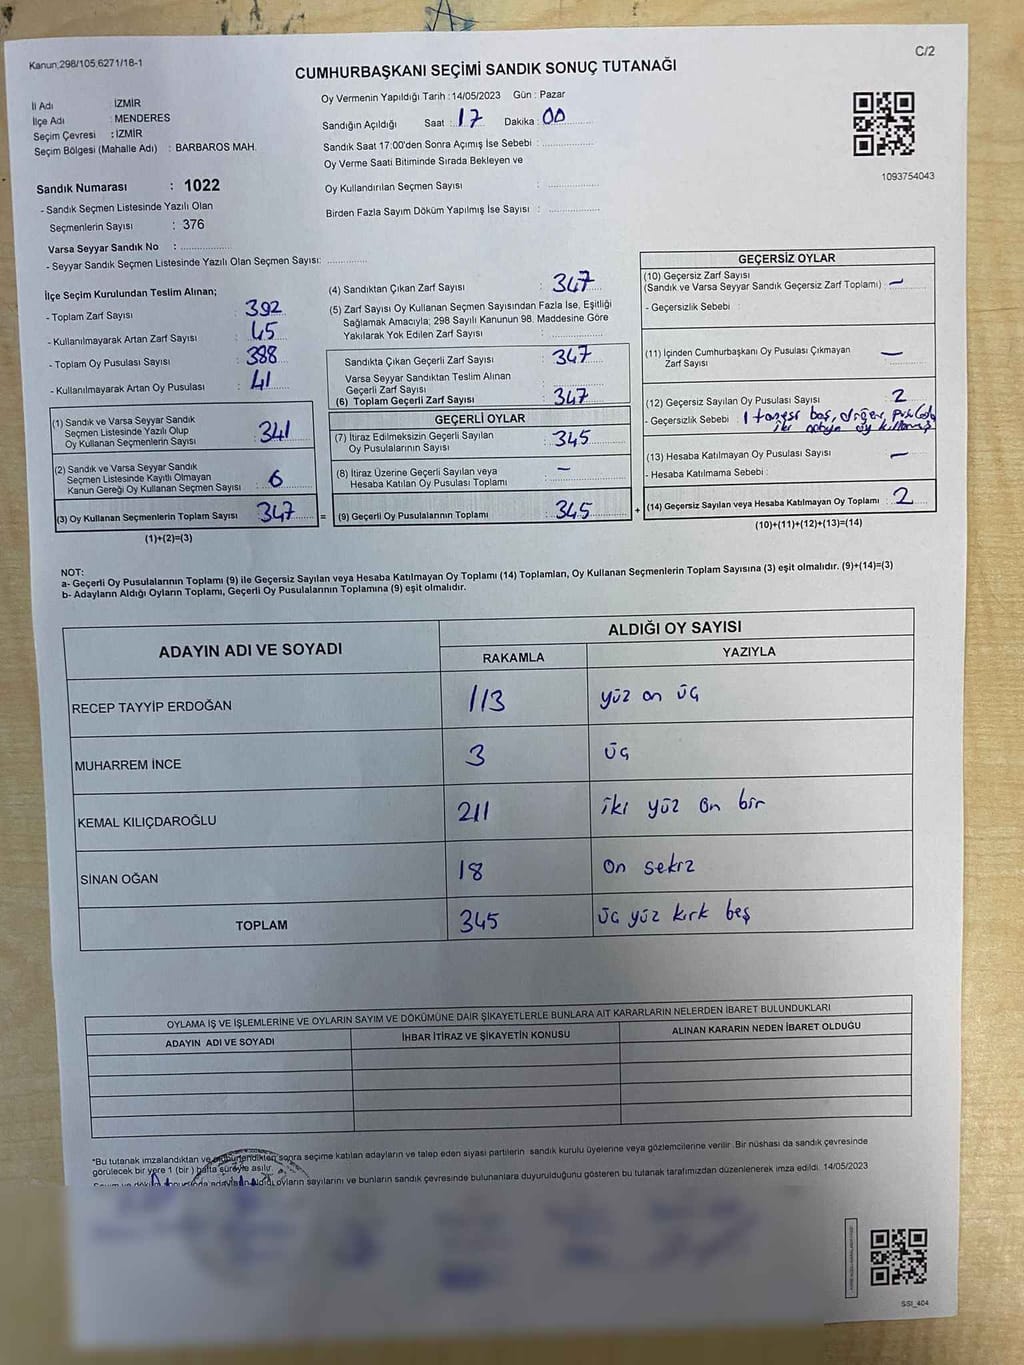 Kanun;298/105;6271/18-1
C/2
CUMHURBAŞKANI SEÇİMİ SANDIK SONUÇ TUTANAĞI
İl Adı : İZMİR
İlçe Adı : MENDERES
Seçim Çevresi : İZMİR
Seçim Bölgesi (Mahalle Adı) : BARBAROS MAH.
Oy Vermenin Yapıldığı Tarih : 14/05/2023 Gün : Pazar
Sandığın Açıldığı Saat : 17 Dakika : 00
Sandık Saat 17:00'den Sonra Açımış İse Sebebi :
Oy Verme Saati Bitiminde Sırada Bekleyen ve
Oy Kullandırılan Seçmen Sayısı :
Birden Fazla Sayım Döküm Yapılmış İse Sayısı :
1093754043
Sandık Numarası : 1022
- Sandık Seçmen Listesinde Yazılı Olan
Seçmenlerin Sayısı : 376
Varsa Seyyar Sandık No :
- Seyyar Sandık Seçmen Listesinde Yazılı Olan Seçmen Sayısı:
İlçe Seçim Kurulundan Teslim Alınan;
- Toplam Zarf Sayısı : 392
- Kullanılmayarak Artan Zarf Sayısı : 45
- Toplam Oy Pusulası Sayısı : 388
- Kullanılmayarak Artan Oy Pusulası : 41
(1) Sandık ve Varsa Seyyar Sandık
Seçmen Listesinde Yazılı Olup
Oy Kullanan Seçmenlerin Sayısı : 341
(2) Sandık ve Varsa Seyyar Sandık
Seçmen Listesinde Kayıtlı Olmayan
Kanun Gereği Oy Kullanan Seçmen Sayısı : 6
(3) Oy Kullanan Seçmenlerin Toplam Sayısı : 347 =
(1)+(2)=(3)
(4) Sandıktan Çıkan Zarf Sayısı : 347
(5) Zarf Sayısı Oy Kullanan Seçmen Sayısından Fazla İse, Eşitliği
Sağlamak Amacıyla; 298 Sayılı Kanunun 98. Maddesine Göre
Yakılarak Yok Edilen Zarf Sayısı :
Sandıkta Çıkan Geçerli Zarf Sayısı : 347
Varsa Seyyar Sandıktan Teslim Alınan
Geçerli Zarf Sayısı :
(6) Toplam Geçerli Zarf Sayısı : 347
GEÇERLİ OYLAR
(7) İtiraz Edilmeksizin Geçerli Sayılan
Oy Pusulalarının Sayısı : 345
(8) İtiraz Üzerine Geçerli Sayılan veya
Hesaba Katılan Oy Pusulası Toplamı : –
(9) Geçerli Oy Pusulalarının Toplamı : 345 +
GEÇERSİZ OYLAR
(10) Geçersiz Zarf Sayısı
(Sandık ve Varsa Seyyar Sandık Geçersiz Zarf Toplamı) : –
- Geçersizlik Sebebi :
(11) İçinden Cumhurbaşkanı Oy Pusulası Çıkmayan
Zarf Sayısı : –
(12) Geçersiz Sayılan Oy Pusulası Sayısı : 2
- Geçersizlik Sebebi : 1 tanesi boş, diğer
iki oy kullanmış
(13) Hesaba Katılmayan Oy Pusulası Sayısı : –
- Hesaba Katılmama Sebebi :
(14) Geçersiz Sayılan veya Hesaba Katılmayan Oy Toplamı : 2
(10)+(11)+(12)+(13)=(14)
NOT:
a- Geçerli Oy Pusulalarının Toplamı (9) ile Geçersiz Sayılan veya Hesaba Katılmayan Oy Toplamı (14) Toplamları, Oy Kullanan Seçmenlerin Toplam Sayısına (3) eşit olmalıdır. (9)+(14)=(3)
b- Adayların Aldığı Oyların Toplamı, Geçerli Oy Pusulalarının Toplamına (9) eşit olmalıdır.
ADAYIN ADI VE SOYADI
ALDIĞI OY SAYISI
RAKAMLA YAZIYLA
RECEP TAYYİP ERDOĞAN 113 yüz on üç
MUHARREM İNCE 3 üç
KEMAL KILIÇDAROĞLU 211 iki yüz on bir
SİNAN OĞAN 18 on sekiz
TOPLAM 345 üç yüz kırk beş
OYLAMA İŞ VE İŞLEMLERİNE VE OYLARIN SAYIM VE DÖKÜMÜNE DAİR ŞİKAYETLERLE BUNLARA AİT KARARLARIN NELERDEN İBARET BULUNDUKLARI
ADAYIN ADI VE SOYADI İHBAR İTİRAZ VE ŞİKAYETİN KONUSU ALINAN KARARIN NEDEN İBARET OLDUĞU
*Bu tutanak imzalandıktan ve mühürlendikten sonra seçime katılan adayların ve talep eden siyasi partilerin sandık kurulu üyelerine veya gözlemcilerine verilir. Bir nüshası da sandık çevresinde
görülecek bir yere 1 (bir) hafta süreyle asılır.
Sayım ve döküm sonucunda adayların aldığı oyların sayılarını ve bunların sandık çevresinde bulunanlara duyurulduğunu gösteren bu tutanak tarafımızdan düzenlenerek imza edildi. 14/05/2023
SSI_404